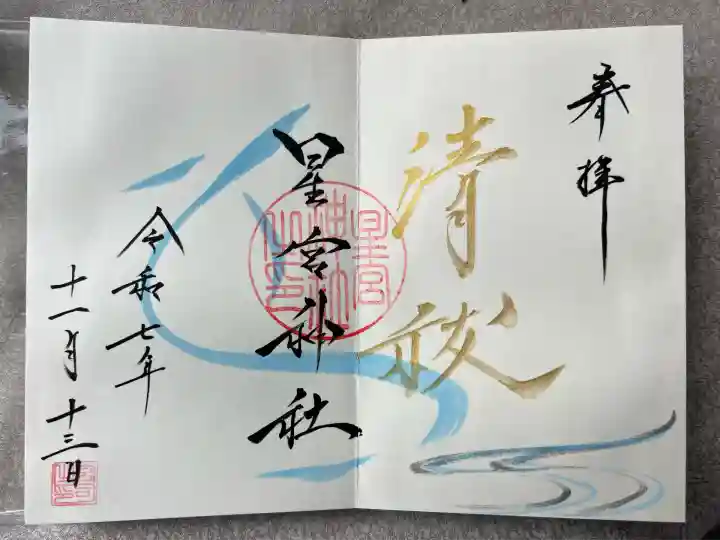 奉拝
清祓
星宮神社
令和七年
十一月十三日
星宮神社之印